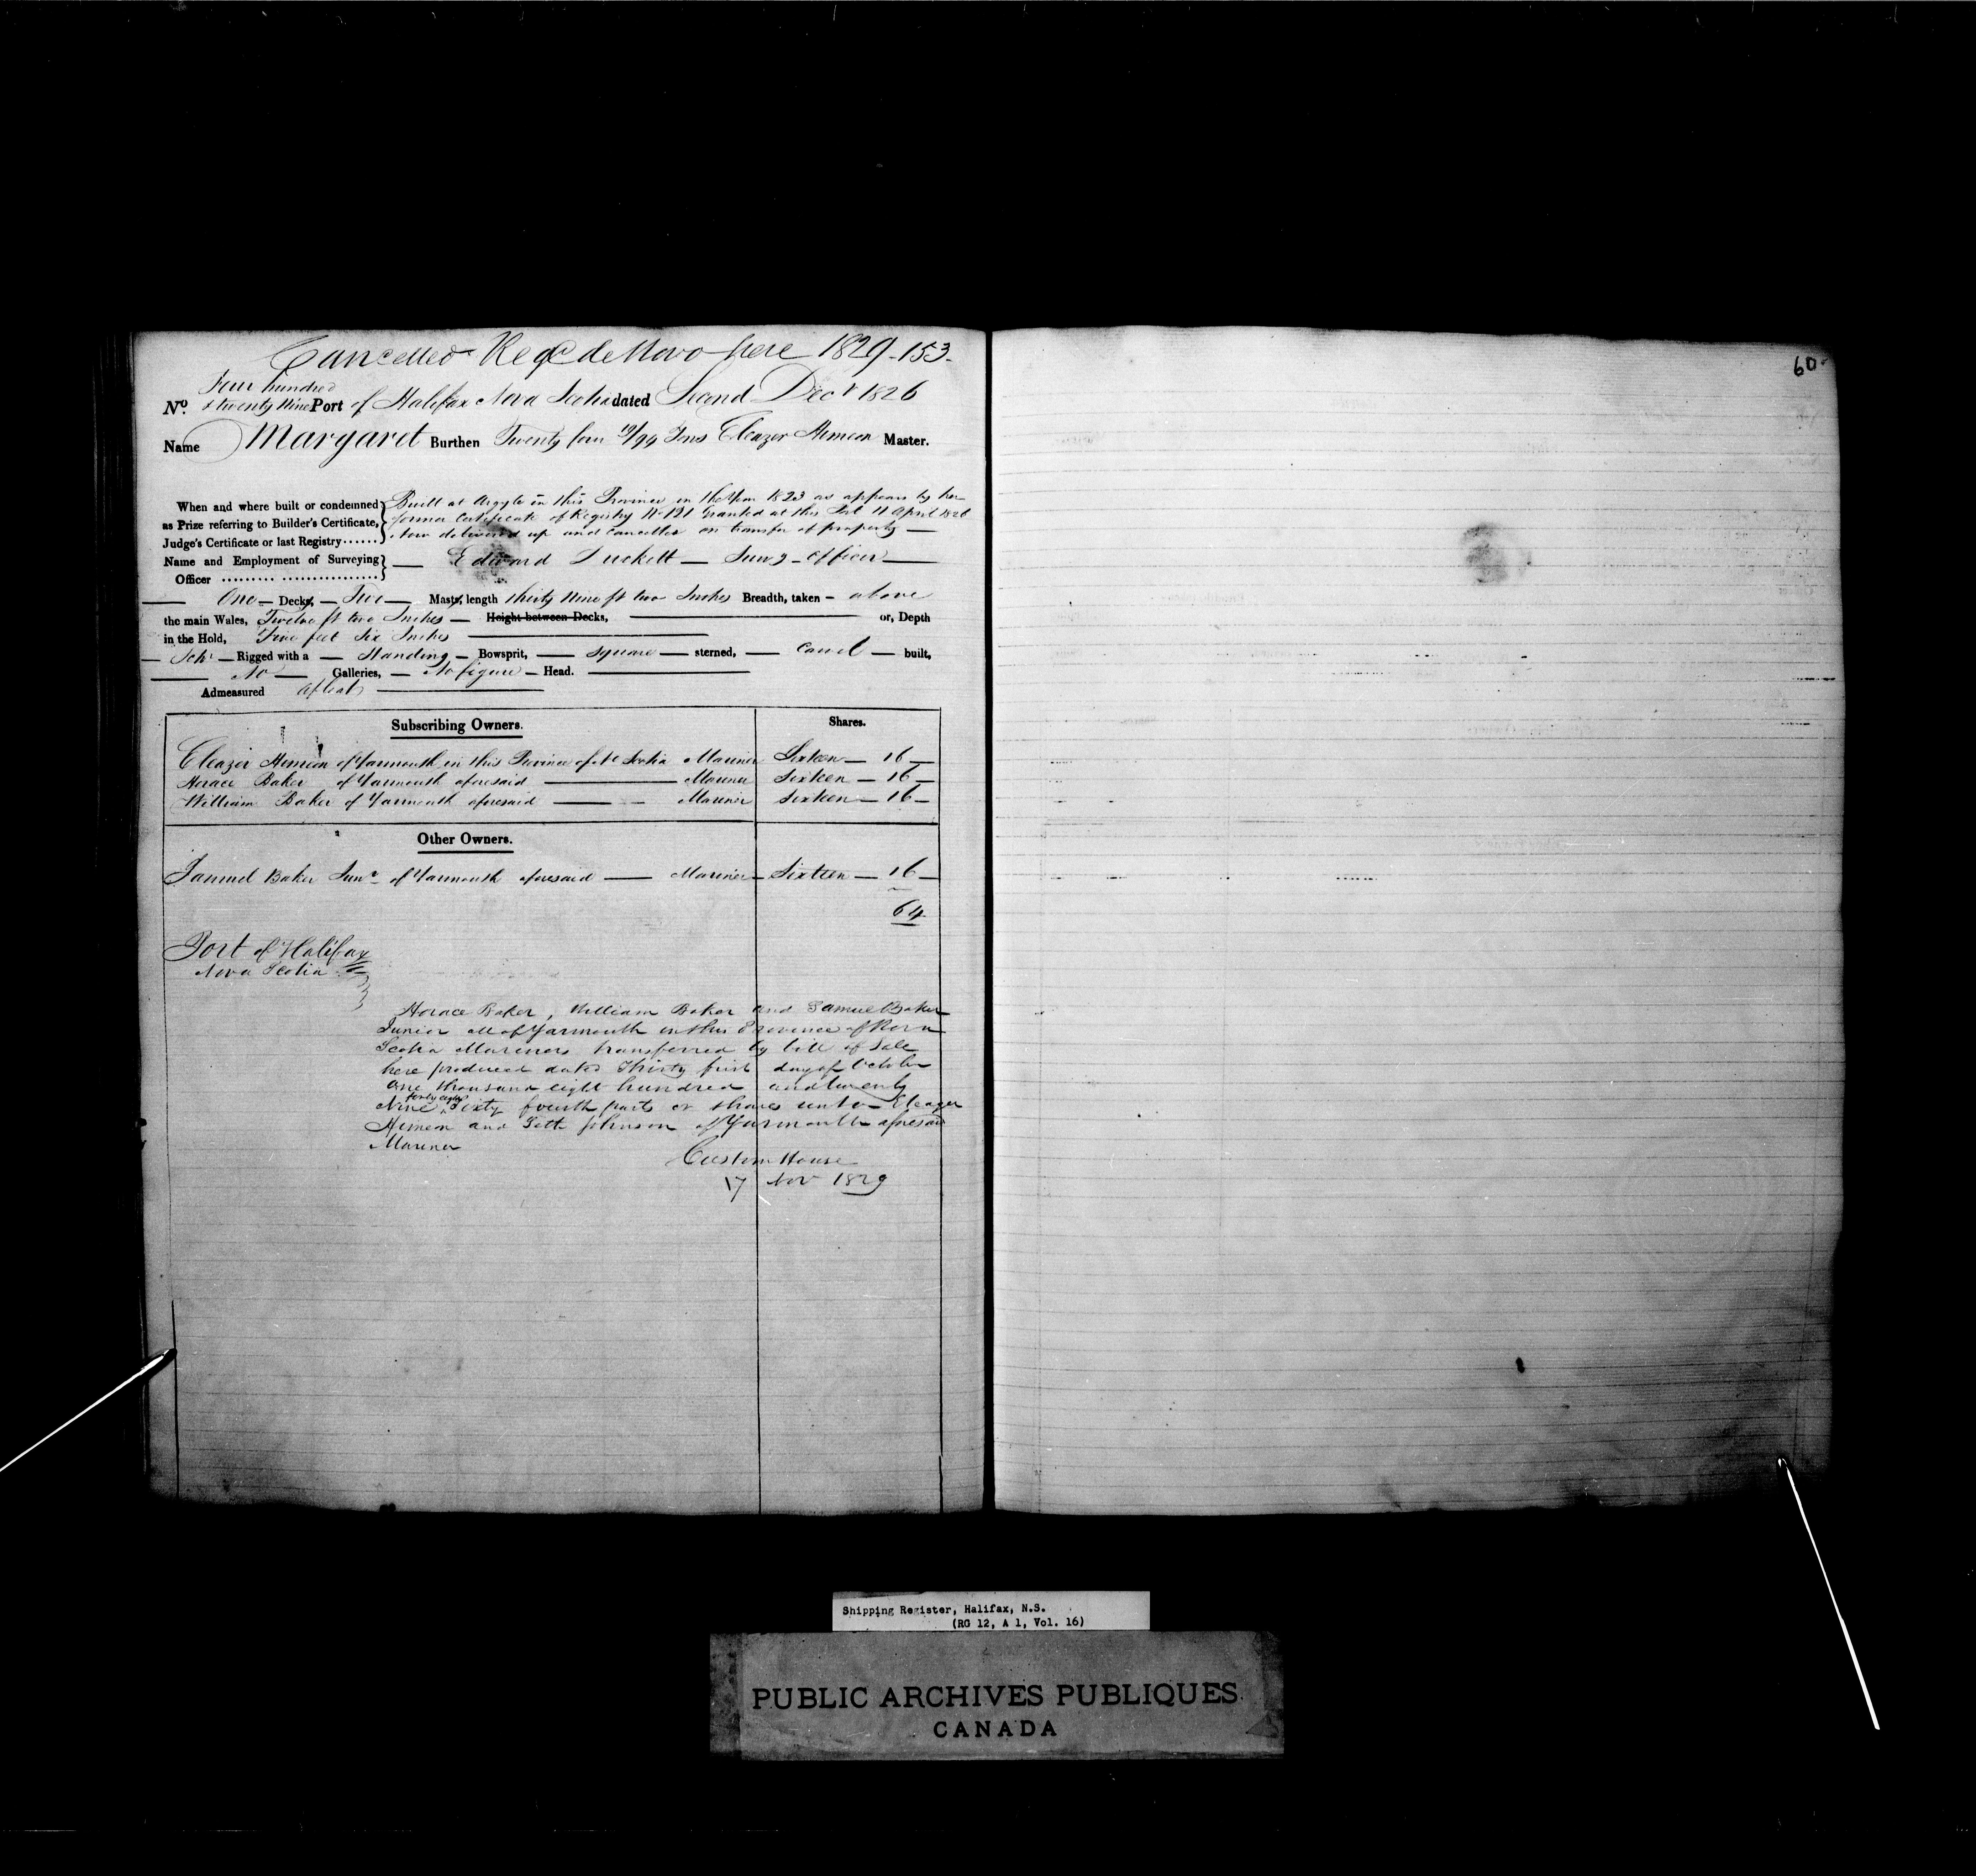 Cancelled Regd de Novo here 1829-153-
Four hundred
No. & twenty Nine Port of Halifax Nova Scotia dated Second Decr 1826
Name Margaret Burthen Twenty four 19/94 Tons Eleazer Hemeon Master.
When and where built or condemned
as Prize referring to Builder's Certificate,
Judge's Certificate or last Registry ......
Built at Argyle in this Province in the Year 1823 as appears by her
former Certificate of Registry No 121 Granted at this Port 11 April 1826
Now delivered up and cancelled on transfer of property —
Name and Employment of Surveying
Officer ......... .................
— Edward Duckett — Survg - Officer —
— One — Decks, — Two — Masts, length thirty Nine ft two Inches Breadth, taken - above
the main Wales, Twelve ft two Inches — Height between Decks, — or, Depth
in the Hold, Five feet Six Inches —
— Schr — Rigged with a — Standing — Bowsprit, — square — sterned, — Carvel — built,
— No — Galleries, — No figure — Head. —
Admeasured afloat —
Subscribing Owners. Shares.
Eleazer Hemeon of Yarmouth in this Province of N Scotia Mariner Sixteen — 16 —
Horace Baker of Yarmouth aforesaid — Mariner Sixteen — 16 —
William Baker of Yarmouth aforesaid — Mariner Sixteen — 16 —
Other Owners.
Samuel Baker Junr of Yarmouth aforesaid — Mariner — Sixteen — 16 —
64
Port of Halifax
Nova Scotia
Horace Baker, William Baker and Samuel Baker
Junior all of Yarmouth in this Province of Nova
Scotia Mariners transferred by bill of Sale
here produced dated Thirty first day of October
One thousand eight hundred and twenty
Nine forty eight Sixty fourth parts or shares unto Eleazer
Hemeon and Seth Johnson of Yarmouth aforesaid
Mariner
Custom House
17 Nov 1829
60
Shipping Register, Halifax, N.S.
(RG 12, A 1, Vol. 16)
PUBLIC ARCHIVES PUBLIQUES
CANADA